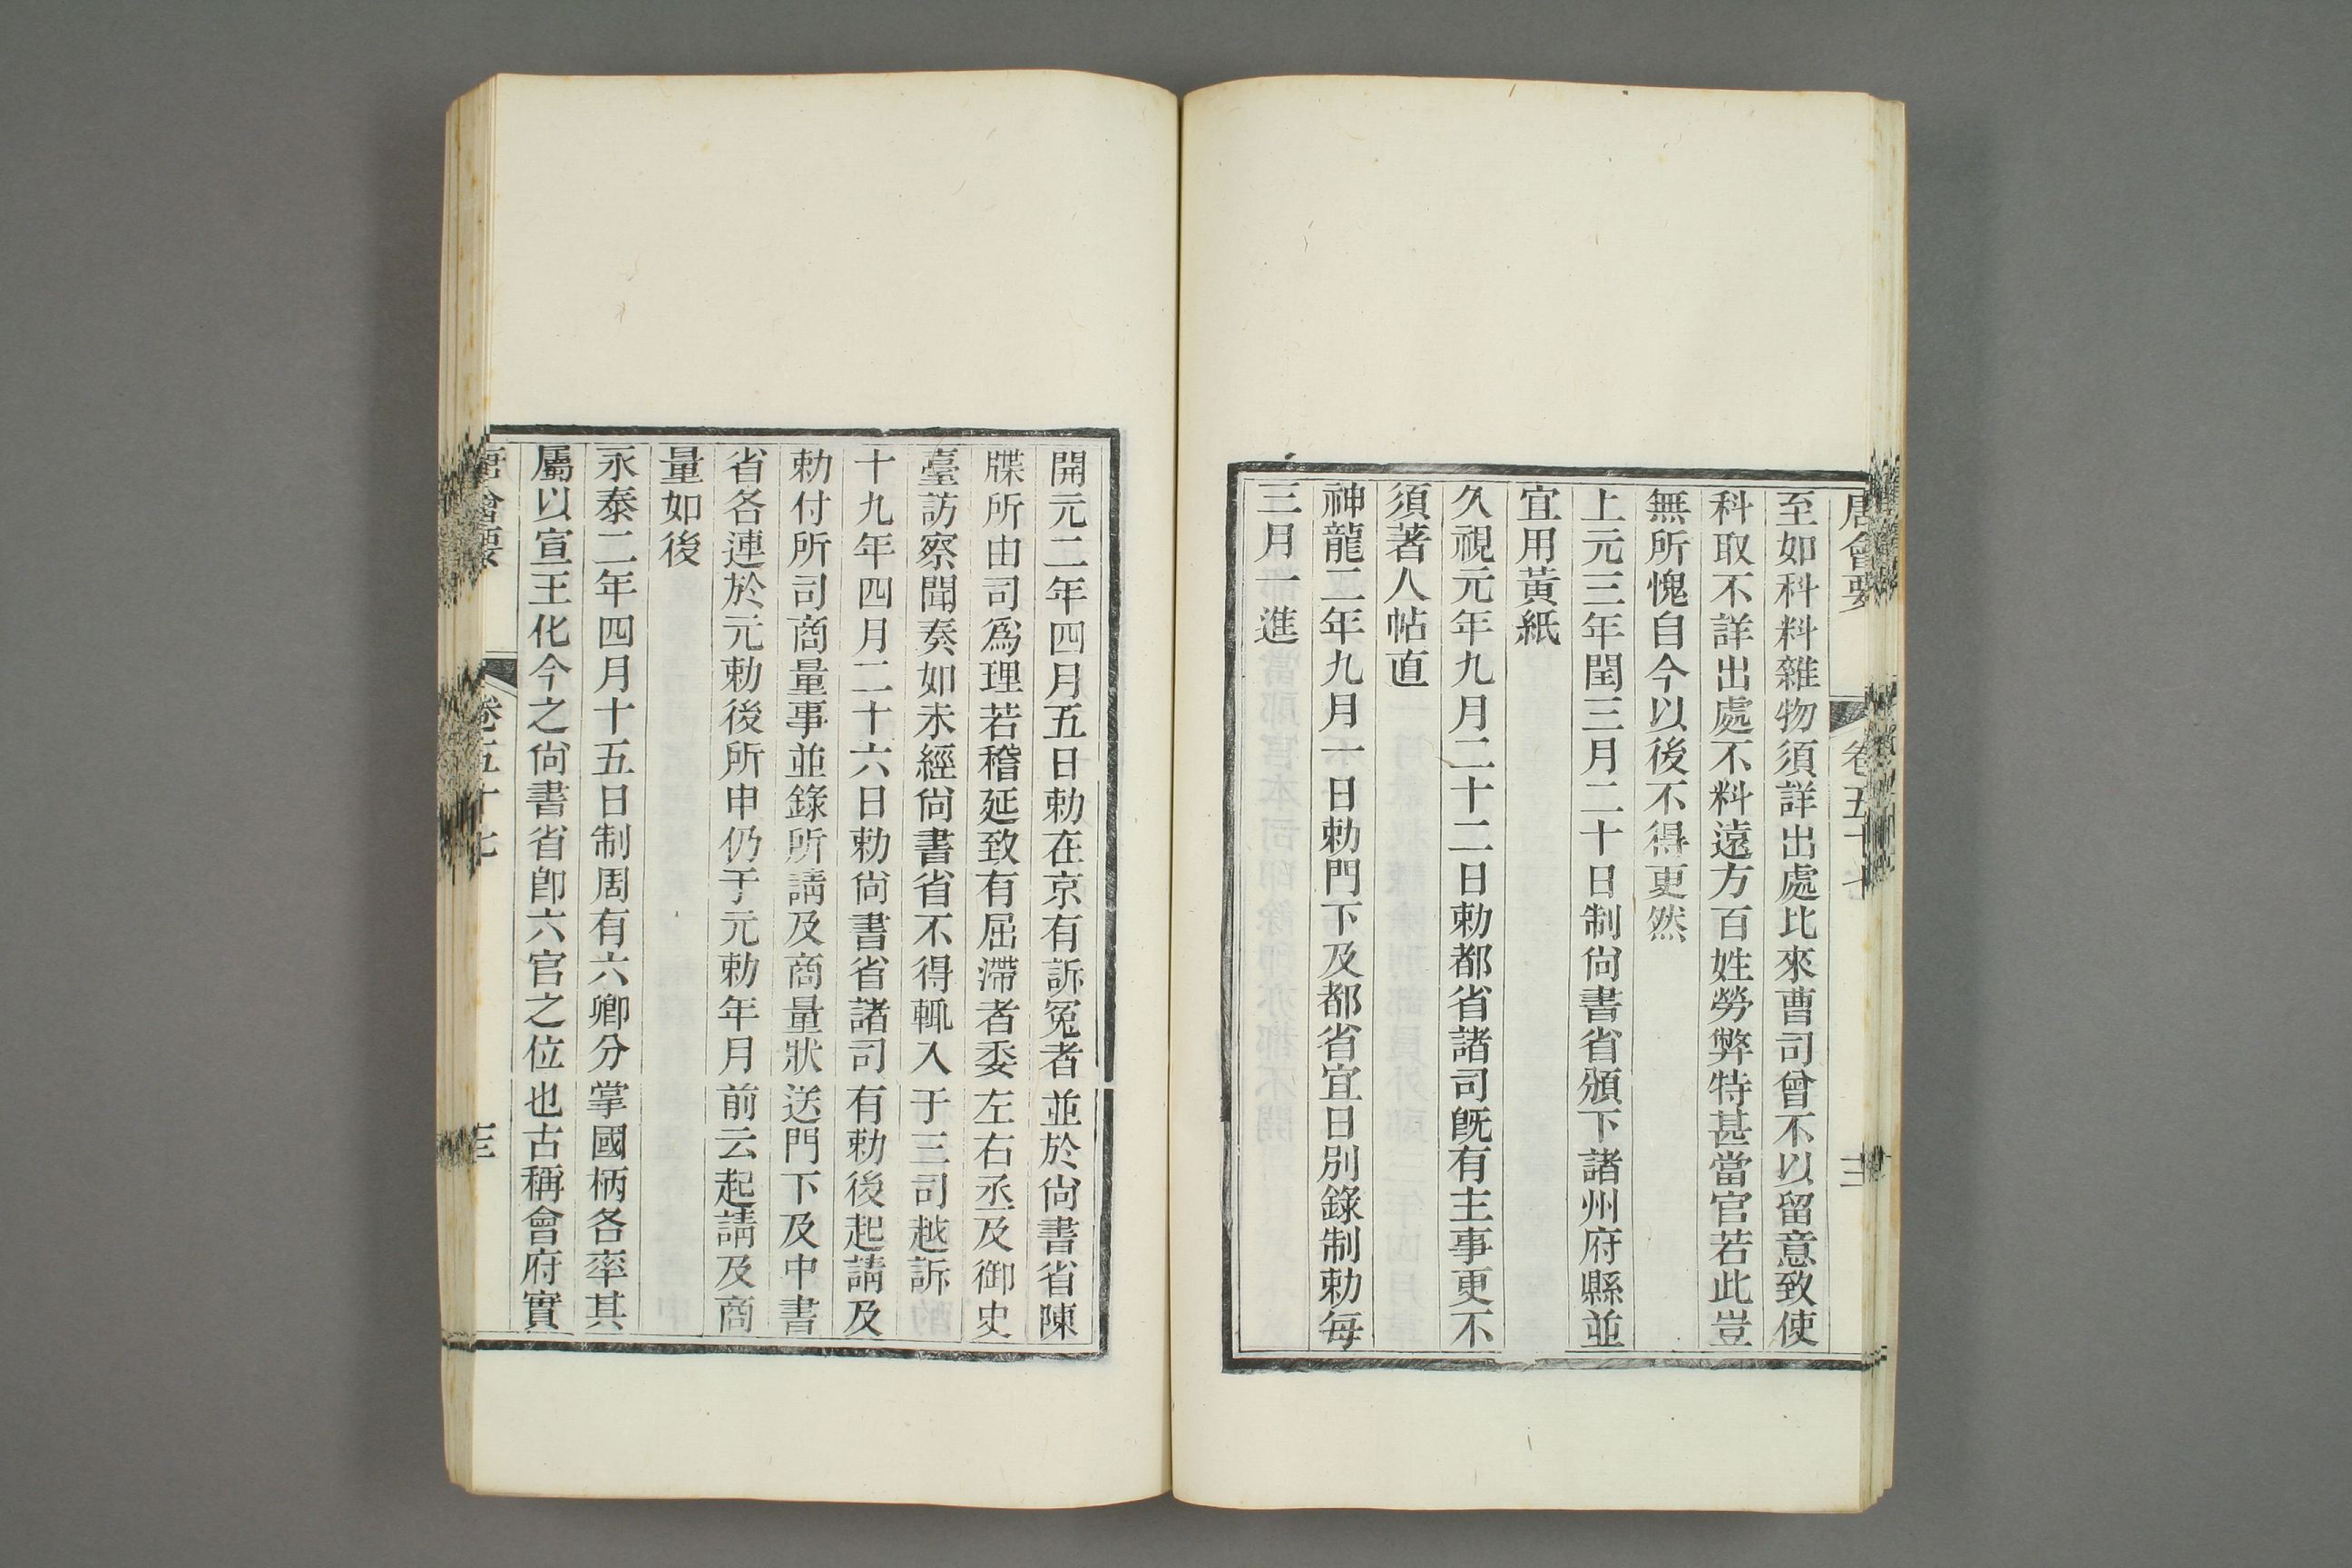 唐會要 卷五十七 三
至如科料雜物須詳出處比來曹司曾不以留意致使
科取不詳出處不料遠方百姓勞弊特甚當官若此豈
無所愧自今以後不得更然
上元三年閏三月二十日制尙書省頒下諸州府縣並
宜用黃紙
久視元年九月二十二日勅都省諸司旣有主事更不
須著人帖直
神龍二年九月一日勅門下及都省宜日別錄制勅每
三月一進
開元二年四月五日勅在京有訴冤者並於尙書省陳
牒所由司爲理若稽延致有屈滯者委左右丞及御史
臺訪察聞奏如未經尙書省不得輒入于三司越訴
十九年四月二十六日勅尙書省諸司有勅後起請及
勅付所司商量事並錄所請及商量狀送門下及中書
省各連於元勅後所申仍于元勅年月前云起請及商
量如後
永泰二年四月十五日制周有六卿分掌國柄各率其
屬以宣王化今之尙書省卽六官之位也古稱會府實
唐會要 卷五十七 三